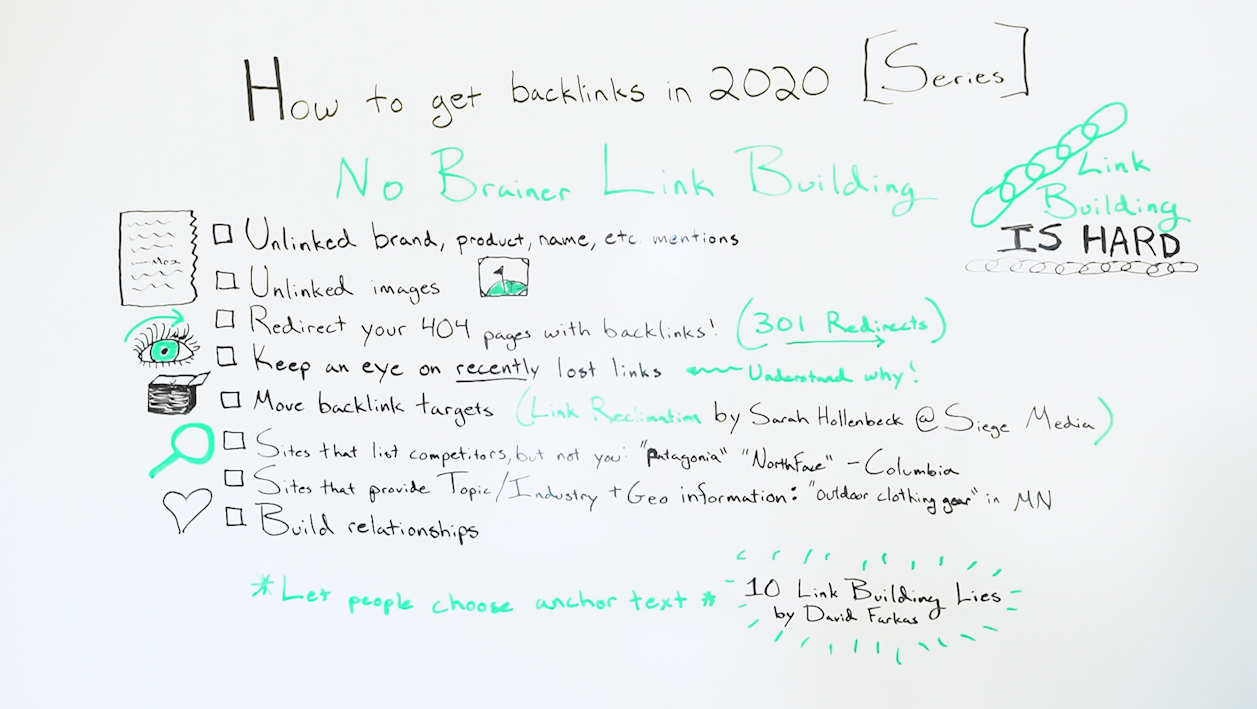 How to get backlinks in 2020 [Series]
No Brainer Link Building
Link
Building
IS HARD
Moz
Unlinked brand, product, name, etc. mentions
Unlinked images
Redirect your 404 pages with backlinks! (301 Redirects)
Keep an eye on recently lost links Understand why!
Move backlink targets (Link Reclimation by Sarah Hollenbeck @ Siege Media)
Sites that list competitors, but not you: "Patagonia" "NorthFace" - Columbia
Sites that provide Topic/Industry + Geo information: "outdoor clothing gear" in MN
Build relationships
*Let people choose anchor text*
10 Link Building Lies
by David Farkas